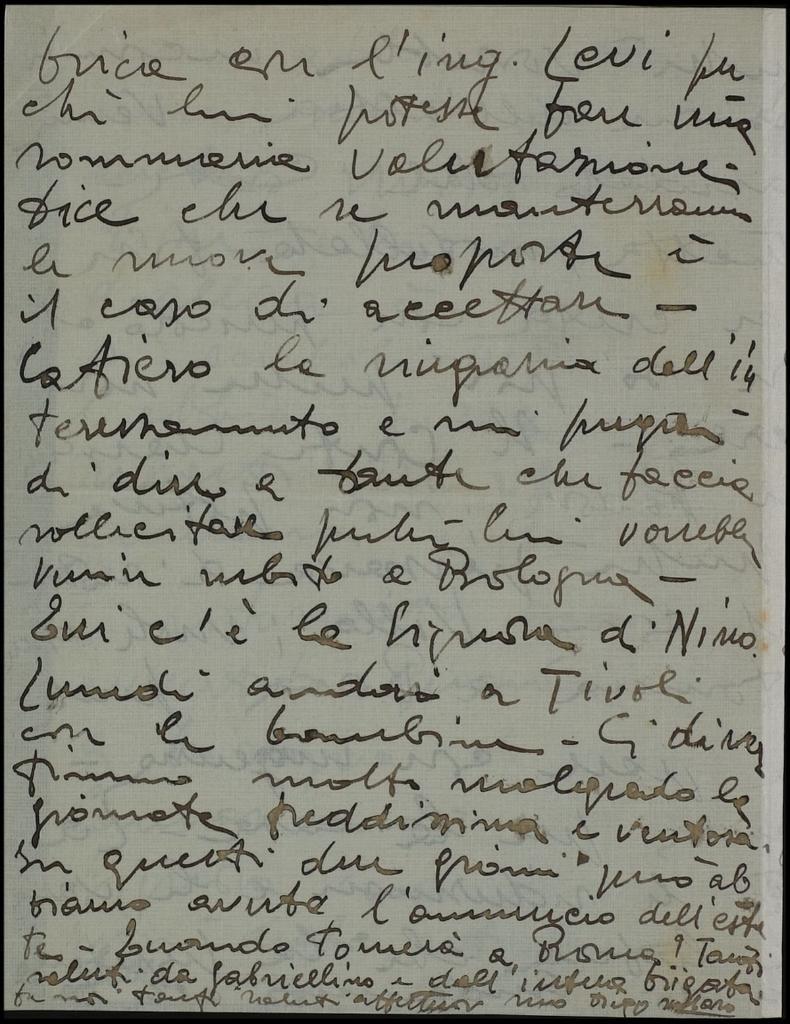 brica con l'ing. Levi per
chè lui potesse fare una
sommaria valutazione -
dice che se manterranno
le nuove proposte è
il caso di accettare -
Cafiero la ringrazia dell'in
teressamento e mi prega
di dire a Dante che faccia
sollecitare perchè lui vorrebbe
venire subito a Bologna -
Qui c'è la Signora di Nino.
Lunedì andai a Tivoli
con le bambine - Ci diver
timmo molto malgrado la
giornata freddissima e ventosa.
In questi due giorni però ab
biamo avuto l'annuncio dell'esta
te - Quando tornerà a Roma? Tanti
saluti da Gabriellino e dall'intera brigata
tanti saluti affettuosi suo